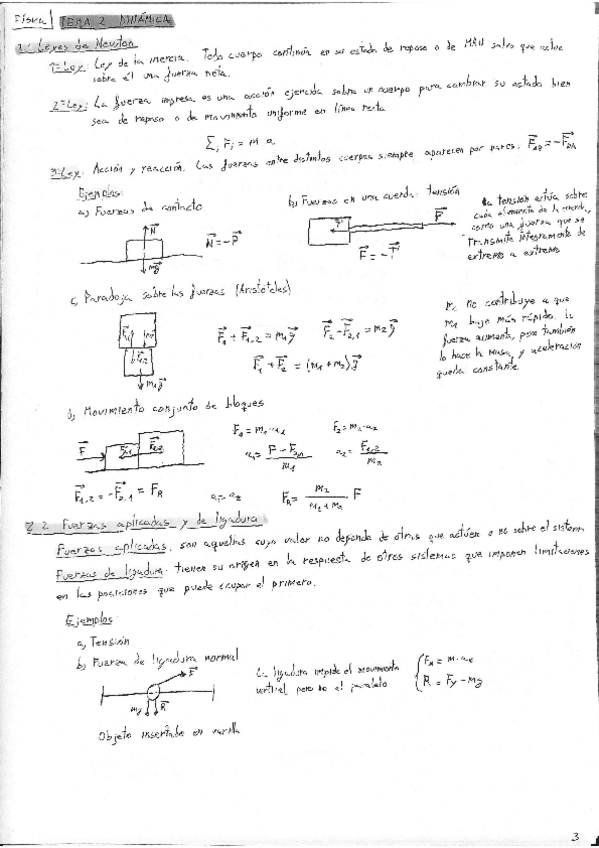 Física TEMA 2 DINÁMICA
2.1 Leyes de Newton
1ª Ley: Ley de la inercia. Todo cuerpo continúa en su estado de reposo o de MRU salvo que actúe
sobre él una fuerza neta.
2ª Ley: La fuerza impresa es una acción ejercida sobre un cuerpo para cambiar su estado bien
sea de reposo o de movimiento uniforme en línea recta
Σi Fi = m a
3ª Ley: Acción y reacción. Las fuerzas entre distintos cuerpos siempre aparecen por pares. F⃗AB = -F⃗BA
Ejemplos:
a) Fuerzas de contacto
N⃗
N⃗ = -P⃗
mg⃗
b) Fuerzas en una cuerda: tensión
T⃗
F⃗
F⃗ = -T⃗
La tensión actúa sobre
cada elemento de la cuerda,
como una fuerza que se
transmite íntegramente de
extremo a extremo
c) Paradoja sobre las fuerzas (Aristóteles)
m1g⃗
F⃗1 + F⃗1,2 = m1g⃗ F⃗2 - F⃗2,1 = m2g⃗
F⃗1 + F⃗2 = (m1 + m2)g⃗
m2 no contribuye a que
m1 baje más rápido. La
fuerza aumenta, pero también
lo hace la masa, y aceleración
queda constante
d) Movimiento conjunto de bloques
F⃗
F⃗2,1 F⃗1,2
F1 = m1·a1 F2 = m2·a2
a1 = F - F2,1 / m1 a2 = F1,2 / m2
F⃗1,2 = -F⃗2,1 = FR a1 = a2 FR = m2 / m1 + m2 · F
2.2. Fuerzas aplicadas y de ligadura
Fuerzas aplicadas: son aquellas cuyo valor no depende de otras que actúen o no sobre el sistema
Fuerzas de ligadura: tienen su origen en la respuesta de otros sistemas que imponen limitaciones
en las posiciones que puede ocupar el primero.
Ejemplos
a) Tensión
b) Fuerza de ligadura normal
F⃗
mg⃗ R⃗
La ligadura impide el movimiento
vertical pero no el paralelo
Fx = m·ax
R = Fy - mg
Objeto insertado en varilla
3